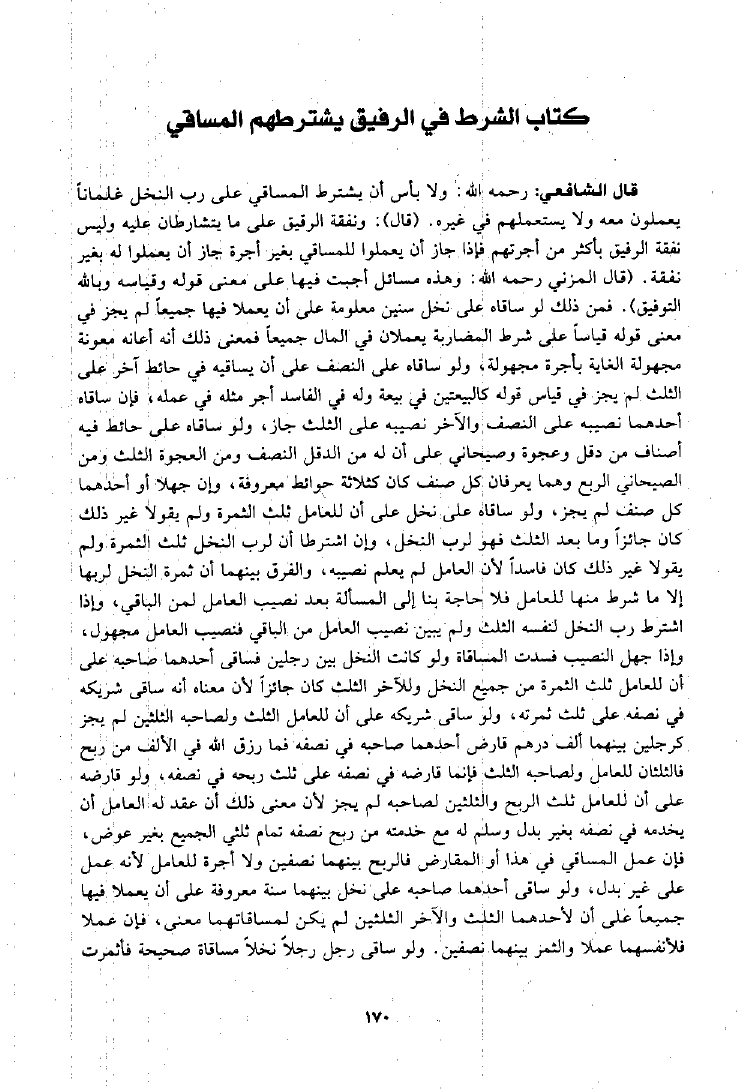 كتاب الشرط في الرفيق يشترطهم المساقي
قال الشافعي: رحمه الله: ولا بأس أن يشترط المساقي على رب النخل غلماناً
يعملون معه ولا يستعملهم في غيره. (قال): ونفقة الرقيق على ما يتشارطان عليه وليس
نفقة الرقيق بأكثر من أجرتهم فإذا جاز أن يعملوا للمساقي بغير أجرة جاز أن يعملوا له بغير
نفقة. (قال المزني رحمه الله: وهذه مسائل أجبت فيها على معنى قوله وقياسه وبالله
التوفيق). فمن ذلك لو ساقاه على نخل سنين معلومة على أن يعملا فيها جميعاً لم يجز في
معنى قوله قياساً على شرط المضاربة يعملان في المال جميعاً فمعنى ذلك أنه أعانه معونة
مجهولة الغاية بأجرة مجهولة، ولو ساقاه على النصف على أن يساقيه في حائط آخر على
الثلث لم يجز في قياس قوله كالبيعتين في بيعة وله في الفاسد أجر مثله في عمله، فإن ساقاه
أحدهما نصيبه على النصف والآخر نصيبه على الثلث جاز، ولو ساقاه على حائط فيه
أصناف من دقل وعجوة وصيحاني على أن له من الدقل النصف ومن العجوة الثلث ومن
الصيحاني الربع وهما يعرفان كل صنف كان كثلاثة حوائط معروفة، وإن جهلا أو أحدهما
كل صنف لم يجز، ولو ساقاه على نخل على أن للعامل ثلث الثمرة ولم يقولا غير ذلك
كان جائزاً وما بعد الثلث فهو لرب النخل، وإن اشترطا أن لرب النخل ثلث الثمرة ولم
يقولا غير ذلك كان فاسداً لأن العامل لم يعلم نصيبه، والفرق بينهما أن ثمرة النخل لربها
إلا ما شرط منها للعامل فلا حاجة بنا إلى المسألة بعد نصيب العامل لمن الباقي، وإذا
اشترط رب النخل لنفسه الثلث ولم يبين نصيب العامل من الباقي فنصيب العامل مجهول،
وإذا جهل النصيب فسدت المساقاة ولو كانت النخل بين رجلين فساقى أحدهما صاحبه على
أن للعامل ثلث الثمرة من جميع النخل وللآخر الثلث كان جائزاً لأن معناه أنه ساقى شريكه
في نصفه على ثلث ثمرته، ولو ساقى شريكه على أن للعامل الثلث ولصاحبه الثلثين لم يجز
كرجلين بينهما ألف درهم قارض أحدهما صاحبه في نصفه فما رزق الله في الألف من ربح
فالثلثان للعامل ولصاحبه الثلث فإنما قارضه في نصفه على ثلث ربحه في نصفه، ولو قارضه
على أن للعامل ثلث الربح والثلثين لصاحبه لم يجز لأن معنى ذلك أن عقد له العامل أن
يخدمه في نصفه بغير بدل وسلم له مع خدمته من ربح نصفه تمام ثلثي الجميع بغير عوض،
فإن عمل المساقي في هذا أو المقارض فالربح بينهما نصفين ولا أجرة للعامل لأنه عمل
على غير بدل، ولو ساقى أحدهما صاحبه على نخل بينهما سنة معروفة على أن يعملا فيها
جميعاً على أن لأحدهما الثلث والآخر الثلثين لم يكن لمساقاتهما معنى، فإن عملا
فلأنفسهما عملا والثمر بينهما نصفين. ولو ساقى رجل رجلاً نخلاً مساقاة صحيحة فأثمرت
١٧٠